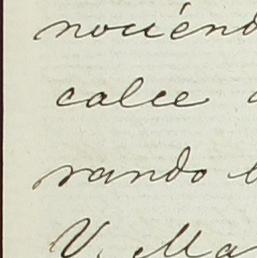 nociend
calce
rando
V. Ma